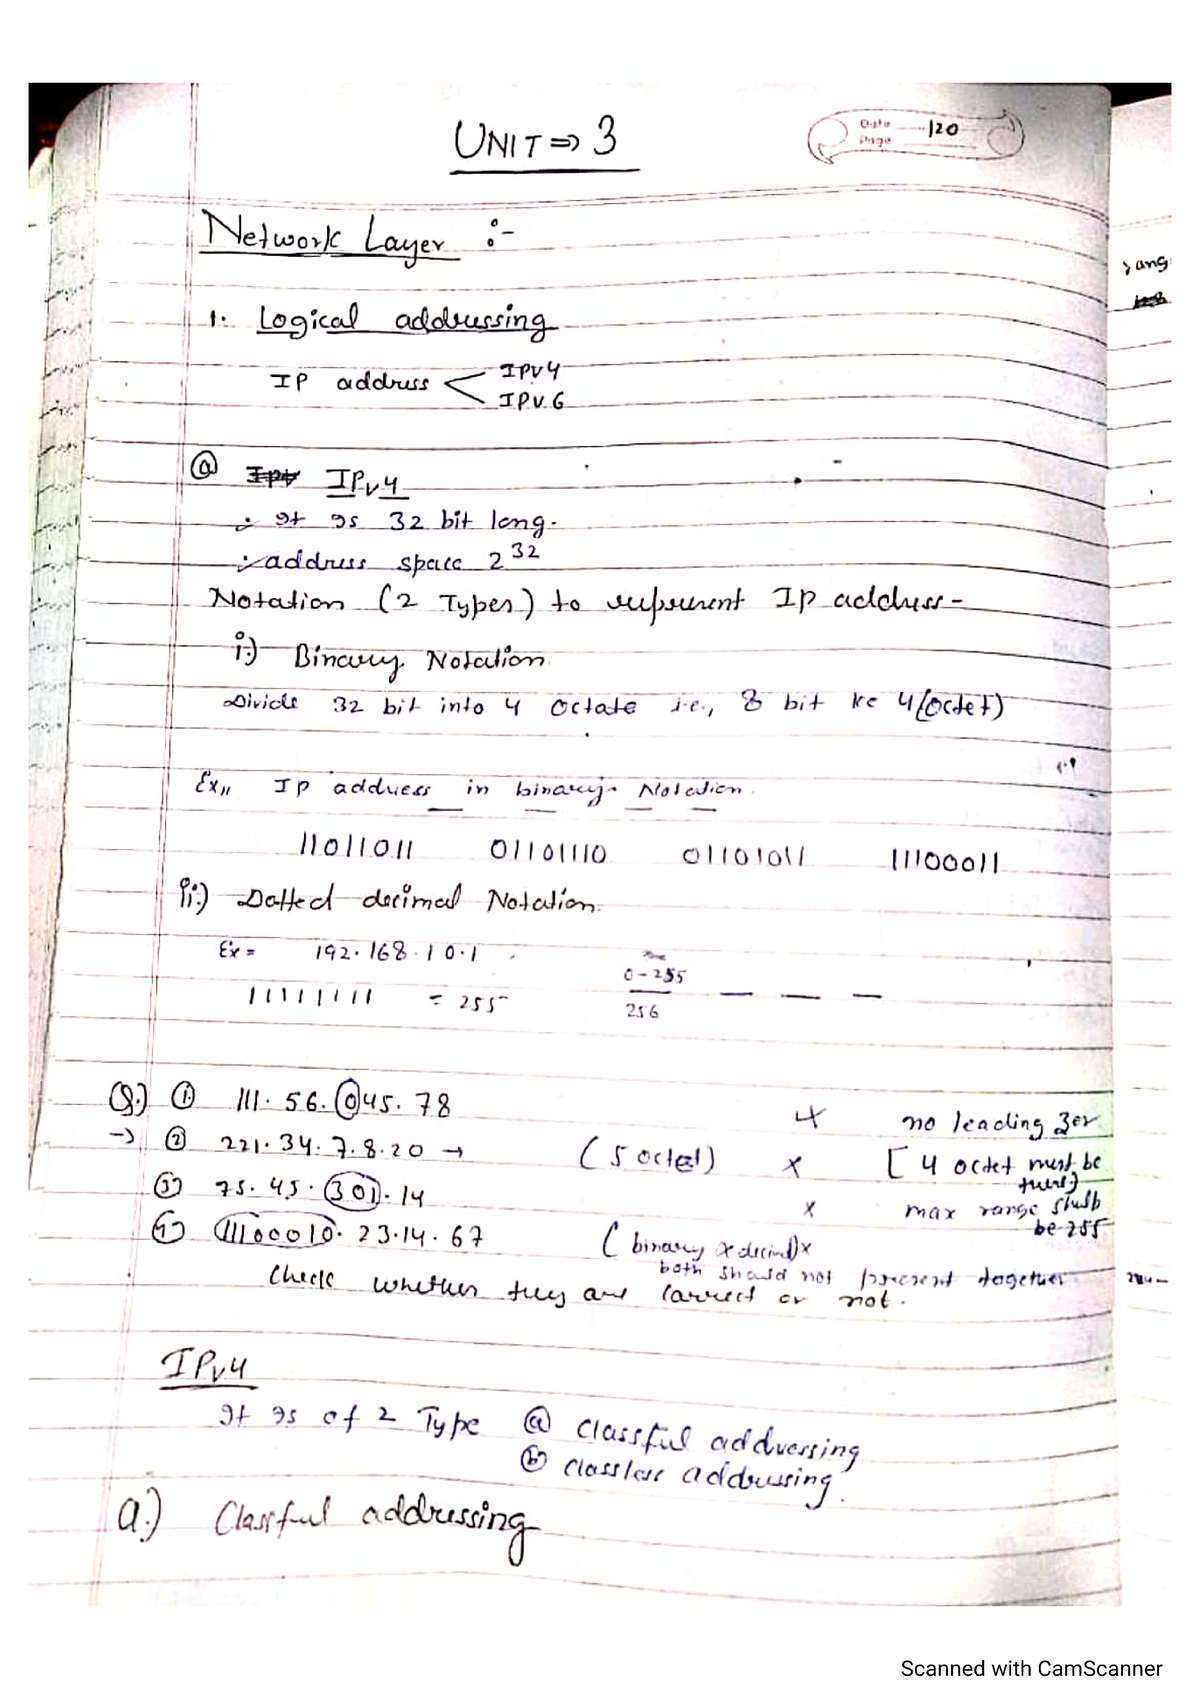 UNIT ⇒ 3
Date 120
Page
Network Layer :-
1. Logical addressing
IP address < IPV4
IPV6
(a) IPv4
:- It is 32 bit long.
:- address space 2^32
Notation (2 Types) to represent Ip address -
i:) Binary Notation
Divide 32 bit into 4 octate i.e., 8 bit ke 4 (octet)
Ex,, Ip address in binary Notation.
11011011 01101110 01101011 11100011
ii:) Dotted decimal Notation.
Ex = 192.168.10.1
0-255
11111111 = 255
256
Q.) ① 111.56.045.78 no leading zer
→ ② 221.34.7.8.20 → (5 octet) x [4 octet must be there]
③ 75.45.301.14 x max range shulb be 255
④ 11100010.23.14.67 (binary x decimal) x
both should not present together
Check whether they are correct or not.
IPv4
It is of 2 Type (a) classful addressing
(b) classless addressing.
a.) Classful addressing
Scanned with CamScanner